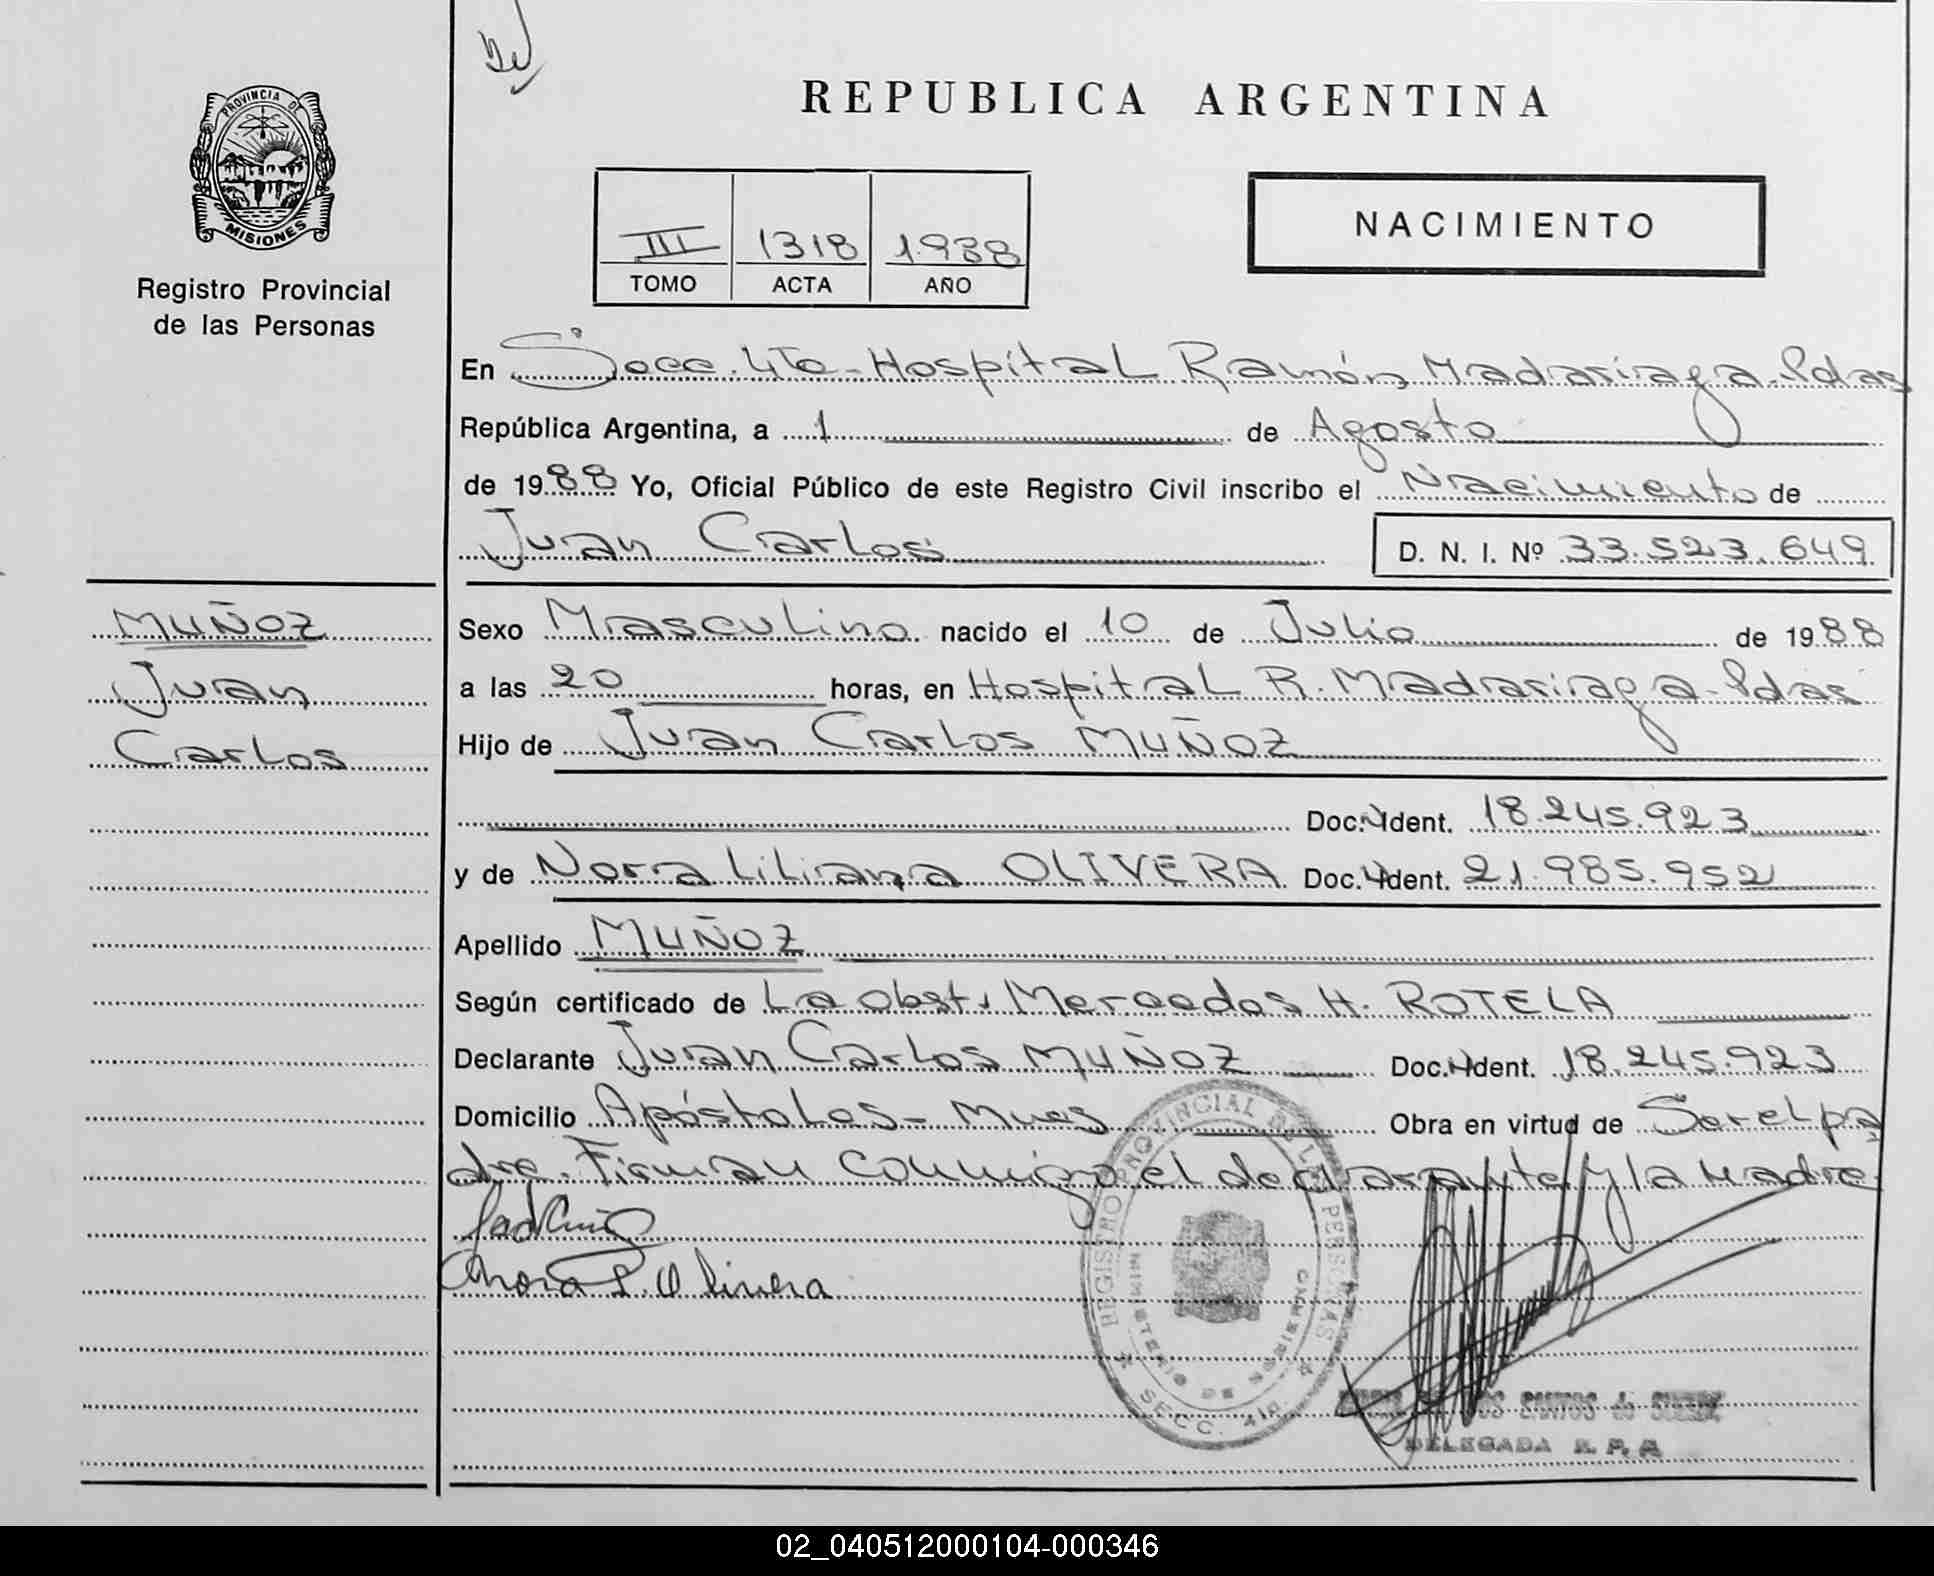 REPUBLICA ARGENTINA
PROVINCIA DE
MISIONES
Registro Provincial
de las Personas
III 1318 1.988
TOMO ACTA AÑO
NACIMIENTO
En Secc. 4ta - Hospital Ramón Madariaga - Pdas
República Argentina, a 1 de Agosto
de 1988 Yo, Oficial Público de este Registro Civil inscribo el Nacimiento de
Juan Carlos D. N. I. Nº 33.523.649
MUÑOZ
Juan
Carlos
Sexo Masculino nacido el 10 de Julio de 1988
a las 20 horas, en Hospital R. Madariaga - Pdas
Hijo de Juan Carlos MUÑOZ
Doc. Ident. 18.245.923
y de Nora Liliana OLIVERA Doc. Ident. 21.985.952
Apellido MUÑOZ
Según certificado de La obst. Mercedes H. ROTELA
Declarante Juan Carlos MUÑOZ Doc. Ident. 18.245.923
Domicilio Apóstoles - Mnes Obra en virtud de Ser el pa
dre. Firman conmigo el declarante y la madre
Nora L. Olivera
REGISTRO PROVINCIAL DE LAS PERSONAS
MINISTERIO DE GOBIERNO
SECC. 4ta.
DOS SANTOS de
DELEGADA R. P. P.
02_040512000104-000346